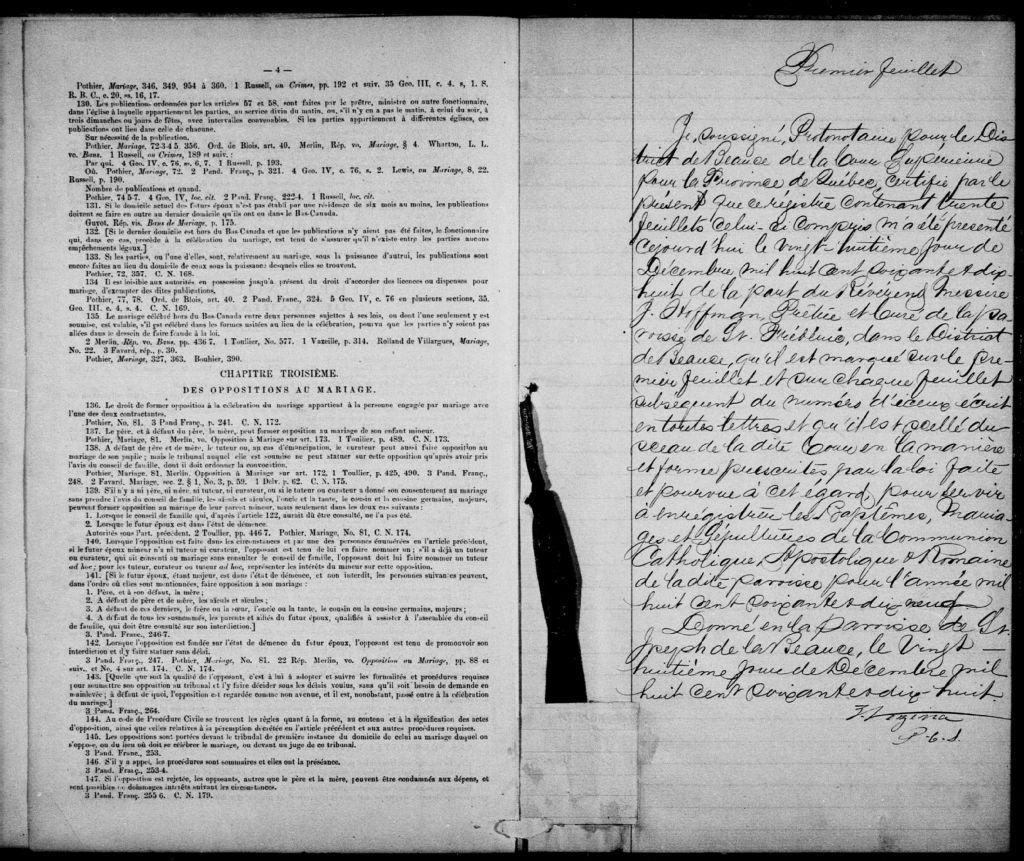 — 4 —
Pothier, Mariage, 346, 349, 954 à 360. 1 Russell, on Crimes, pp. 192 et suiv. 35 Geo. III, c. 4, s. 1. S.
R. B. C., c. 20, ss. 16, 17.
130. Les publications ordonnées par les articles 57 et 58, sont faites par le prêtre, ministre ou autre fonctionnaire,
dans l'église à laquelle appartiennent les parties, au service divin du matin, ou, s'il n'y en a pas le matin, à celui du soir, à
trois dimanches ou jours de fêtes, avec intervalles convenables. Si les parties appartiennent à différentes églises, ces
publications ont lieu dans celle de chacune.
Sur nécessité de la publication.
Pothier, Mariage, 72-3-4 5. 356. Ord. de Blois, art. 40. Merlin, Rép. vo. Mariage, § 4. Wharton, L. L.
vo. Bans. 1 Russell, on Crimes, 189 et suiv. :
Par qui. 4 Geo. IV, c. 76, ss. 6, 7. 1 Russell, p. 193.
Où. Pothier, Mariage, 72. 2 Pand. Franç., p. 321. 4 Geo. IV, c. 76, s. 2. Lewis, on Mariage, 8, 22.
Russell, p. 190.
Nombre de publications et quand.
Pothier, 74 5-7. 4 Geo. IV, loc. cit. 2 Pand. Franç. 222-4. 1 Russell, loc. cit.
131. Si le domicile actuel des futurs époux n'est pas établi par une résidence de six mois au moins, les publications
doivent se faire en outre au dernier domicile qu'ils ont eu dans le Bas-Canada.
Guyot, Rép. vis. Bans de Mariage, p. 175.
132. [Si le dernier domicile est hors du Bas Canada et que les publications n'y aient pas été faites, le fonctionnaire
qui, dans ce cas, procède à la célébration du mariage, est tenu de s'assurer qu'il n'existe entre les parties aucuns
empêchements légaux.]
133. Si les parties, ou l'une d'elles, sont, relativement au mariage, sous la puissance d'autrui, les publications sont
encore faites au lieu du domicile de ceux sous la puissance desquels elles se trouvent.
Pothier, 72, 357. C. N. 168.
134 Il est loisible aux autorités en possession jusqu'à présent du droit d'accorder des licences ou dispenses pour
mariage, d'exempter des dites publications.
Pothier, 77, 78. Ord. de Blois, art. 40. 2 Pand. Franc., 324. 5 Geo. IV, c. 76 en plusieurs sections, 35.
Geo. III. c. 4, s. 4. C. N. 169.
135. Le mariage célébré hors du Bas Canada entre deux personnes sujettes à ses lois, ou dont l'une seulement y est
soumise, est valable, s'il est célébré dans les formes usitées au lieu de la célébration, pourvu que les parties n'y soient pas
allées dans le dessein de faire fraude à la loi.
2 Merlin, Rép. vo. Bans, pp. 436 7. 1 Toullier, No. 577. 1 Vazeille, p. 314. Rolland de Villargues, Mariage,
No. 22. 3 Favard, rép., p. 30.
Pothier, Mariage, 327, 363. Bouhier, 390.
CHAPITRE TROISIÈME.
DES OPPOSITIONS AU MARIAGE.
136. Le droit de former opposition à la célébration du mariage appartient à la personne engagée par mariage avec
l'une des deux contractantes.
Pothier, No. 81. 3 Pand Franç., p. 241. C. N. 172.
137. Le père, et à défaut du père, la mère, peut former opposition au mariage de son enfant mineur.
Pothier, Mariage, 81. Merlin, vo. Opposition à Mariage sur art. 173. 1 Toullier, p. 489. C. N. 173.
138. A défaut de père et de mère, le tuteur ou, au cas d'émancipation, le curateur peut aussi faire opposition au
mariage de son pupille ; mais le tribunal auquel elle est soumise ne peut statuer sur cette opposition qu'après avoir pris
l'avis du conseil de famille, dont il doit ordonner la convocation.
Pothier, Mariage, 81. Merlin, Opposition à Mariage sur art. 172, 1 Toullier, p. 425, 490. 3 Pand. Franç.,
248. 2 Favard. Mariage, sec. 2, § 1, No. 3, p. 59. 1 Delv. p. 62. C. N. 175.
139. S'il n'y a ni père, ni mère, ni tuteur, ni curateur, ou si le tuteur ou curateur a donné son consentement au mariage
sans prendre l'avis du conseil de famille, les aïeuls et aïeules, l'oncle et la tante, le cousin et la cousine germains, majeurs,
peuvent former opposition au mariage de leur parent mineur, mais seulement dans les deux cas suivants :
1. Lorsque le conseil de famille qui, d'après l'article 122, aurait dû être consulté, ne l'a pas été.
2. Lorsque le futur époux est dans l'état de démence.
Autorités sous l'art. précédent. 2 Toullier, pp. 446 7. Pothier, Mariage, No. 81, C. N. 174.
140. Lorsque opposition est faite dans les circonstances et par une des personnes énumérées en l'article précédent,
si le futur époux mineur n'a ni tuteur ni curateur, l'opposant est tenu de lui en faire nommer un ; s'il a déjà un tuteur
ou curateur, qui ait consenti au mariage sans consulter le conseil de famille, l'opposant doit lui faire nommer un tuteur
ad hoc ; pour les tuteur, curateur ou tuteur ad hoc, représenter les intérêts du mineur sur cette opposition.
141. [Si le futur époux, étant majeur, est dans l'état de démence, et non interdit, les personnes suivantes peuvent,
dans l'ordre où elles sont mentionnées, faire opposition à son mariage :
1. Père, et à son défaut, la mère ;
2. A défaut de père et de mère, les aïeuls et aïeules ;
3. A défaut de ces derniers, le frère ou la sœur, l'oncle ou la tante, le cousin ou la cousine germains, majeurs ;
4. A défaut de tous les susnommés, les parents et alliés du futur époux, qualifiés à assister à l'assemblée du conseil
de famille, qui doit être consulté sur son interdiction.]
3. Pand. Franç., 246-7.
142. Lorsque opposition est fondée sur l'état de démence du futur époux, l'opposant est tenu de promouvoir son
interdiction et d'y faire statuer sans délai.
3 Pand. Franç., 247. Pothier, Mariage, No. 81. 22 Rép. Merlin, vo. Opposition au Mariage, pp. 88 et
suiv. et No. 4 sur art. 174. C. N. 174.
143. [Quelle que soit la qualité de l'opposant, c'est à lui à adopter et suivre les formalités et procédures requises
pour soumettre son opposition au tribunal et l'y faire décider sous les délais voulus, sans qu'il soit besoin de demande en
mainlevée ; à défaut de quoi, l'opposition est regardée comme non avenue, et il est, nonobstant, passé outre à la célébration
du mariage.]
3 Pand. Franç., 264.
144. Au code de Procédure Civile se trouvent les règles quant à la forme, au contenu et à la signification des actes
d'opposition, ainsi que celles relatives à la péremption décrétée en l'article précédent et aux autres procédures requises.
145. Les oppositions sont portées devant le tribunal de première instance du domicile de celui au mariage duquel on
s'oppose, ou du lieu où doit se célébrer le mariage, ou devant un juge de ce tribunal.
3 Pand. Franc., 253.
146. S'il y a appel, les procédures sont sommaires et elles ont la préséance.
3 Pand. Franç., 253-4.
147. Si l'opposition est rejetée, les opposants, autres que le père et la mère, peuvent être condamnés aux dépens, et
sont passibles de dommages intérêts suivant les circonstances.
3 Pand. Franç. 255 6. C. N. 179.
Premier feuillet
Je, soussigné, Protonotaire pour le Dis
trict de Beauce de la Cour Supérieure
pour la Province de Québec, certifie par le
présent que ce régistre contenant trente
feuillets celui-ci compris m'a été présenté
cejourd'hui le vingt-huitième jour de
Décembre, mil huit cent soixante et dix-
huit de la part du Révérend Messire
J. Hoffman, Prêtre et Curé de la pa-
roisse de St. Frédéric, dans le District
de Beauce, qu'il est marqué sur le pre-
mier feuillet et sur chaque feuillet
subséquent du numéro d'iceux écrit
en toutes lettres et qu'il est scellé du
sceau de la dite Cour en la manière
et forme prescrites par la loi faite
et pourvue à cet égard, pour servir
à enregistrer les Baptêmes, Maria-
ges et Sépultures de la Communion
Catholique, Apostolique & Romaine
de la dite paroisse pour l'année mil
huit cent soixante et dix neuf
Donné en la paroisse de St.
Joseph de la Beauce, le Vingt-
huitième jour de Décembre mil
huit cent soixante et dix huit.
P. C. S.